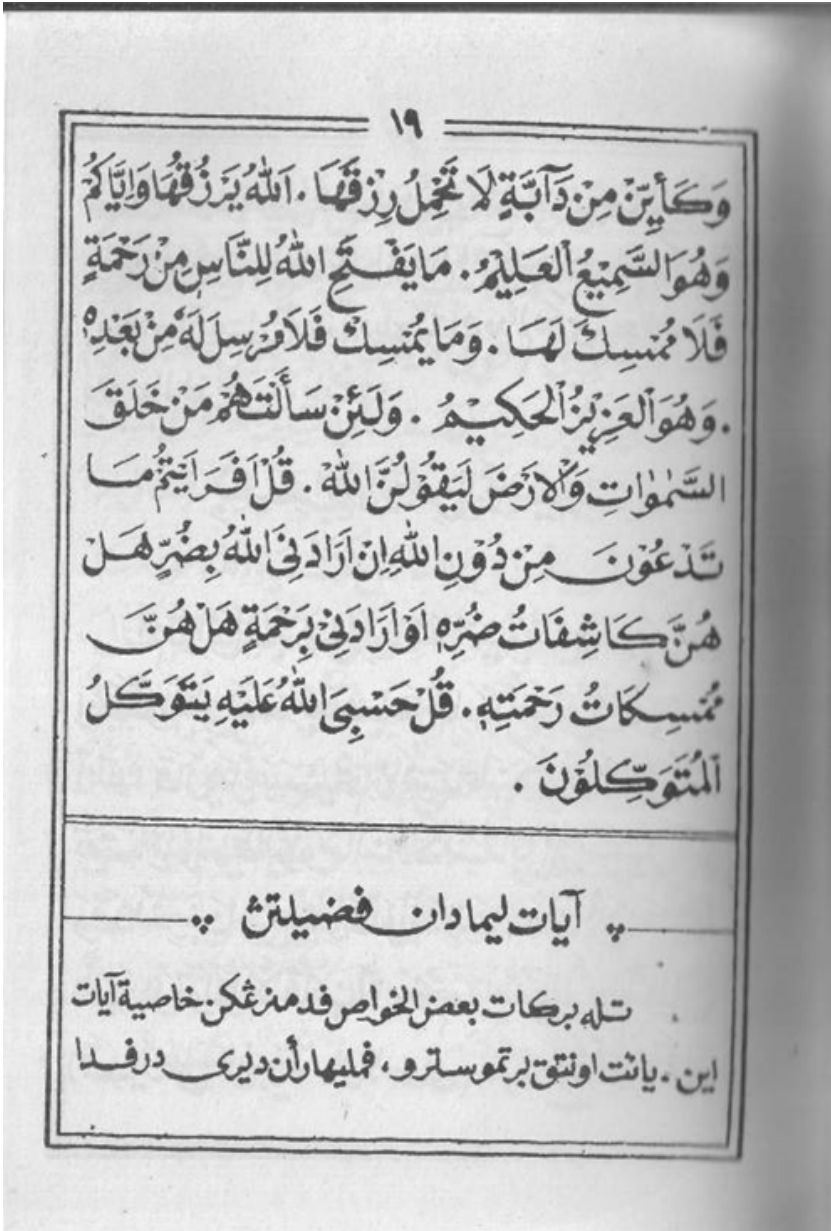 ١٩
وَكَأَيِّنْ مِنْ دَآبَّةٍ لَا تَحْمِلُ رِزْقَهَا . اَللّٰهُ يَرْزُقُهَا وَاِيَّاكُمْ
وَهُوَ السَّمِيْعُ الْعَلِيْمُ . مَا يَفْتَحِ اللّٰهُ لِلنَّاسِ مِنْ رَحْمَةٍ
فَلَا مُمْسِكَ لَهَا . وَمَا يُمْسِكْ فَلَا مُرْسِلَ لَهٗ مِنْ بَعْدِهٖ
. وَهُوَ الْعَزِيْزُ الْحَكِيْمُ . وَلَئِنْ سَأَلْتَهُمْ مَنْ خَلَقَ
السَّمٰوَاتِ وَالْاَرْضَ لَيَقُوْلُنَّ اللّٰهُ . قُلْ اَفَرَاَيْتُمْ مَا
تَدْعُوْنَ مِنْ دُوْنِ اللّٰهِ اِنْ اَرَادَنِيَ اللّٰهُ بِضُرٍّ هَلْ
هُنَّ كَاشِفَاتُ ضُرِّهٖ اَوْ اَرَادَنِيْ بِرَحْمَةٍ هَلْ هُنَّ
مُمْسِكَاتُ رَحْمَتِهٖ . قُلْ حَسْبِيَ اللّٰهُ عَلَيْهِ يَتَوَكَّلُ
الْمُتَوَكِّلُوْنَ .
آيات ليما دان فضيلتڽ
تله بركات بعض الخواص فد منرڠكن خاصية آيات
اين . يائت اونتق برتمو سترو ، فمليهارأن ديري در فدا